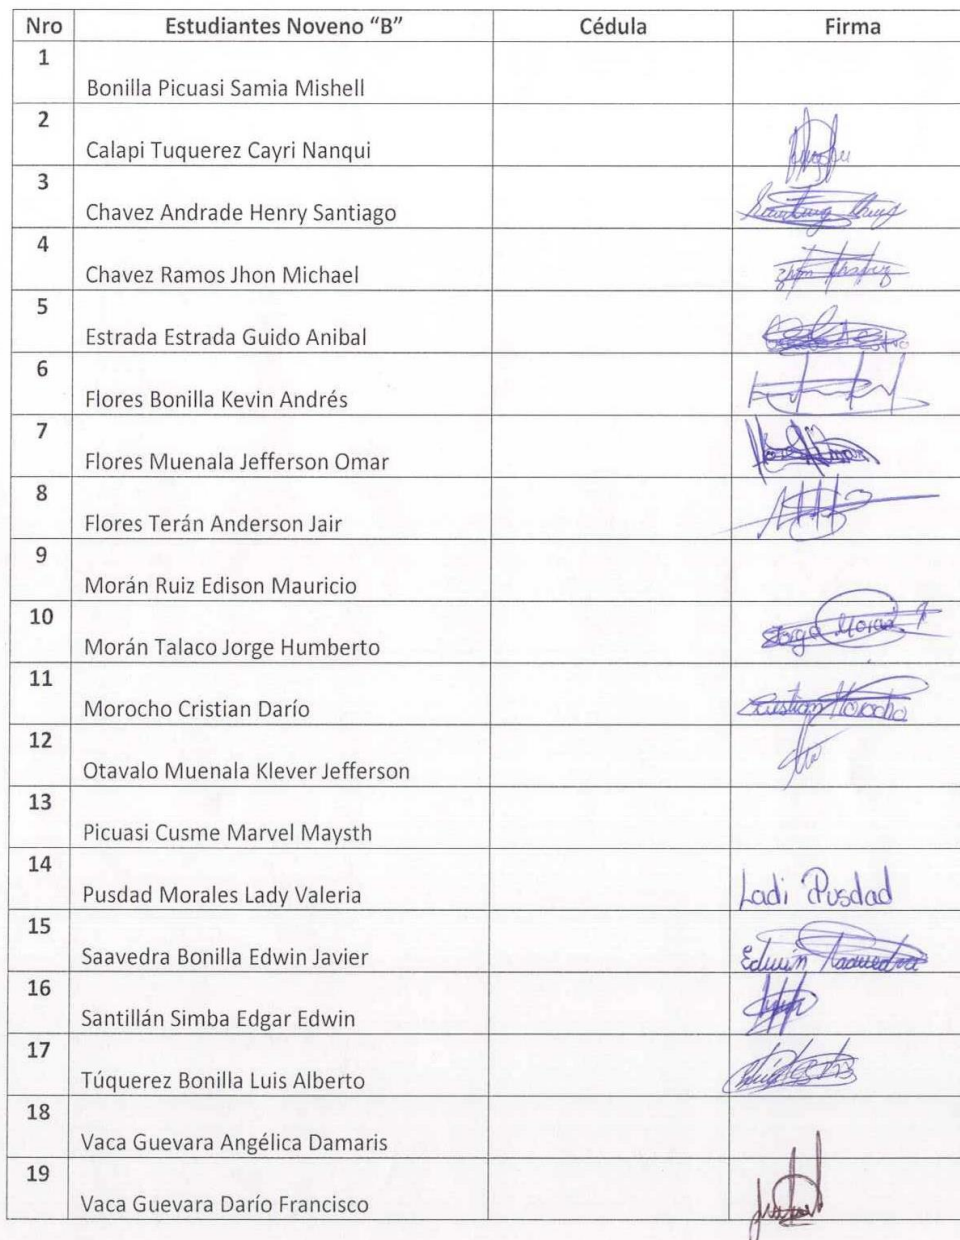 Nro Estudiantes Noveno “B” Cédula Firma
1
Bonilla Picuasi Samia Mishell
2
Calapi Tuquerez Cayri Nanqui
3
Chavez Andrade Henry Santiago
4
Chavez Ramos Jhon Michael
5
Estrada Estrada Guido Anibal
6
Flores Bonilla Kevin Andrés
7
Flores Muenala Jefferson Omar
8
Flores Terán Anderson Jair
9
Morán Ruiz Edison Mauricio
10
Morán Talaco Jorge Humberto
11
Morocho Cristian Darío Cristian Morocho
12
Otavalo Muenala Klever Jefferson
13
Picuasi Cusme Marvel Maysth
14
Pusdad Morales Lady Valeria Ladi Pusdad
15
Saavedra Bonilla Edwin Javier Edwin Saavedra
16
Santillán Simba Edgar Edwin
17
Túquerez Bonilla Luis Alberto
18
Vaca Guevara Angélica Damaris
19
Vaca Guevara Darío Francisco